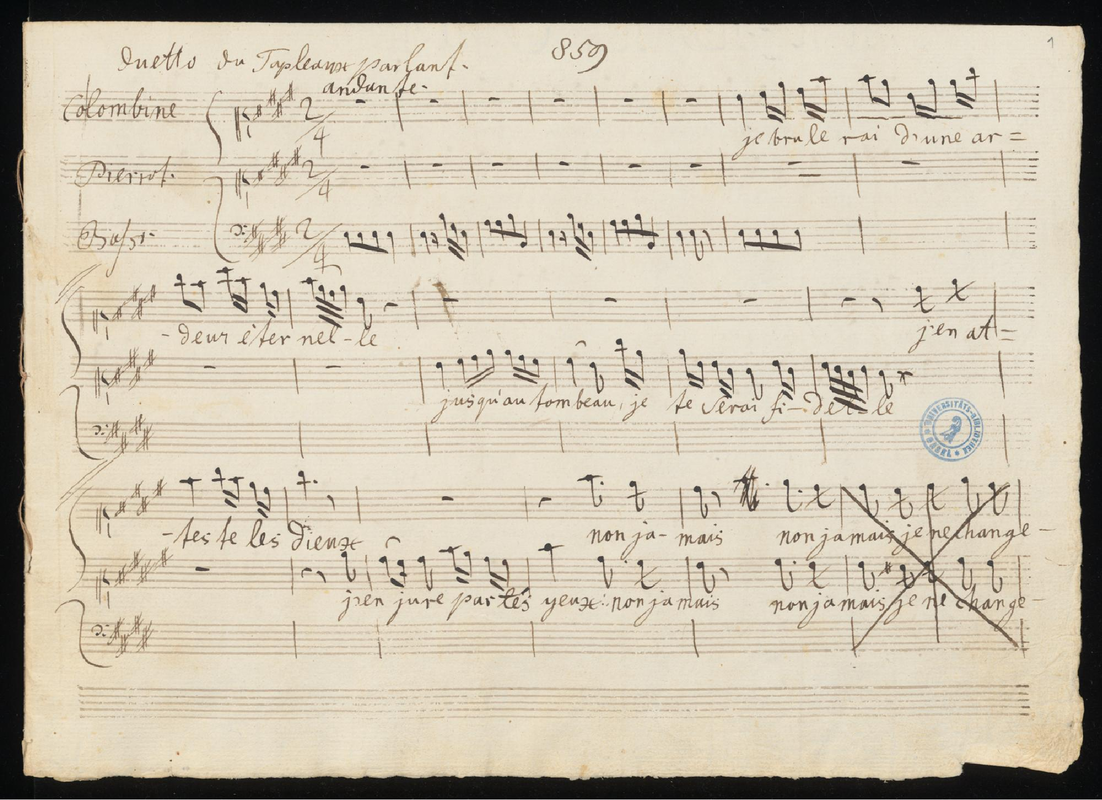 859
1
duetto du Tapleaux parlant.
andante.
Colombine
2/4
je brule rai d'une ar=
Pierrot.
2/4
Basso.
2/4
-deur éter nel-le
j'en at=
jusqu'au tombeau, je te serai fi-del-le
-teste les dieux non ja-mais non jamais je ne change-
j'en jure par tes yeux: non jamais non jamais je ne change-